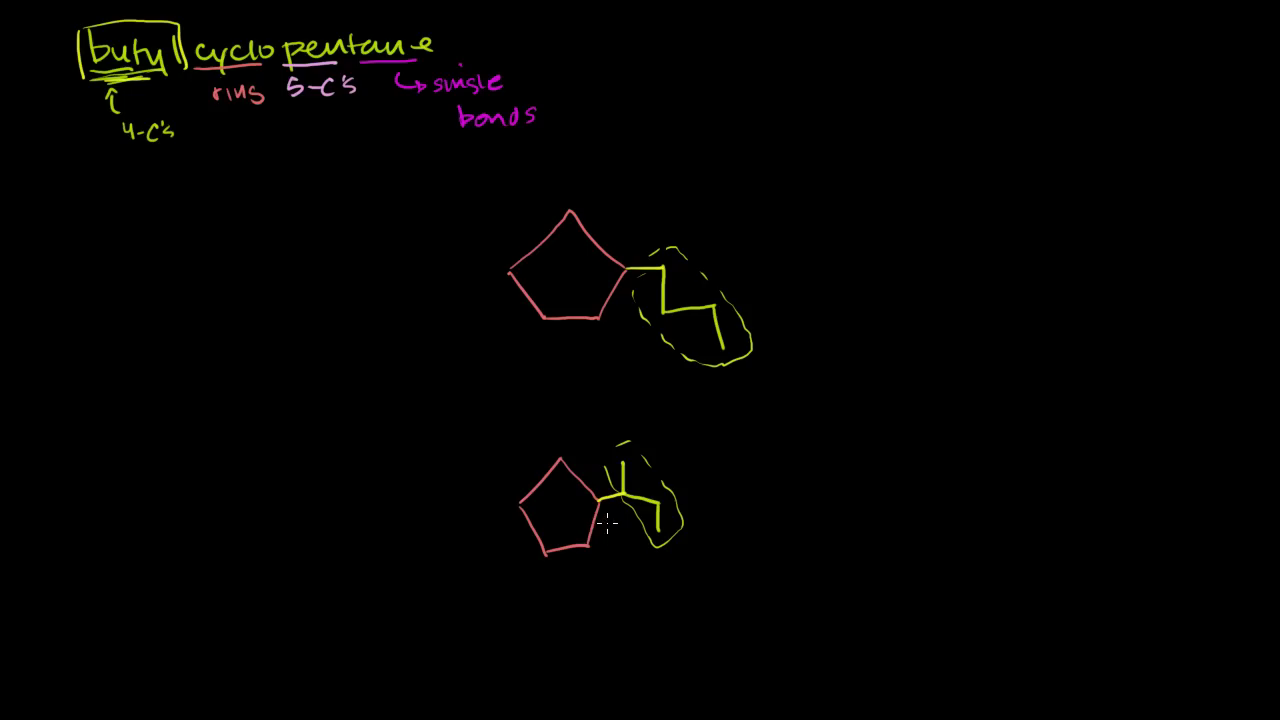 butyl cyclopentane
ring 5-C's single
bonds
4-C's